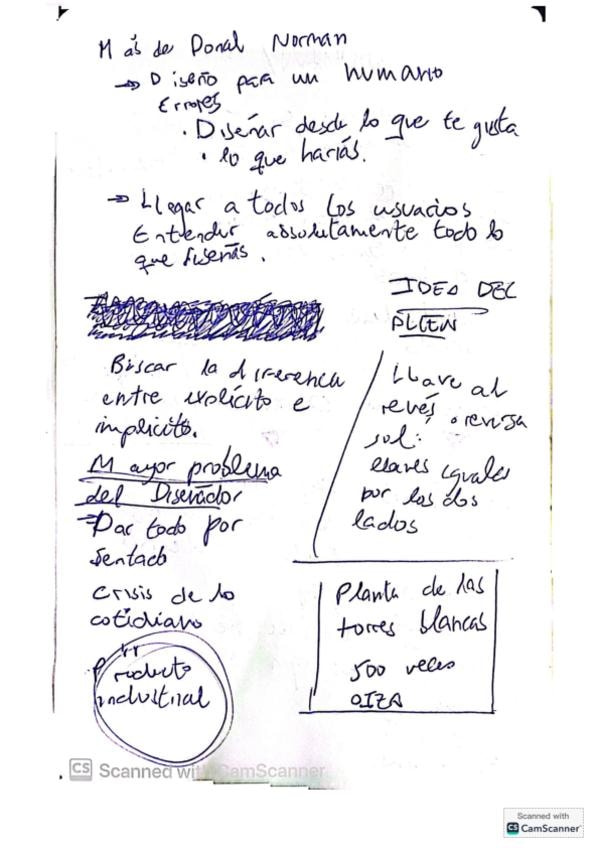 Más de Donal Norman
→ Diseño para un humano
Errores
· Diseñar desde lo que te gusta
· lo que harías.
→ Llegar a todos los usuarios
Entender absolutamente todo lo
que diseñas.
IDEA DEL
Buscar la diferencia
entre explícito e
implícito.
Mayor problema
del Diseñador
→ Dar todo por
sentado
Crisis de lo
cotidiano
Producto
industrial
Llave al
revés
sol:
llaves iguales
por los dos
lados
Planta de las
torres blancas
500 veces
OIZA
CS Scanned with CamScanner
Scanned with
CS CamScanner